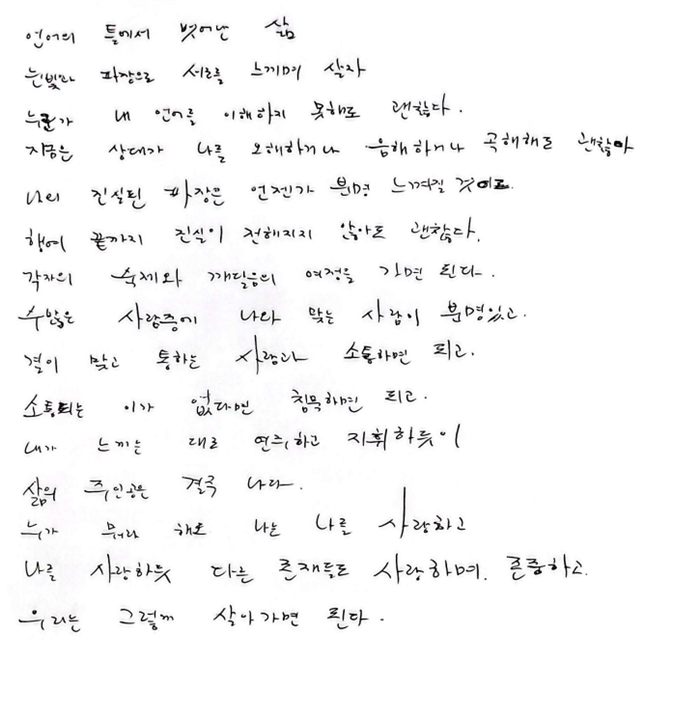 언어의 틀에서 벗어난 삶
눈빛과 파장으로 서로를 느끼며 살자
누군가 내 언어를 이해하지 못해도 괜찮다.
지금은 상대가 나를 오해하거나 음해하거나 곡해해도 괜찮아
나의 진실된 파장은 언젠가 분명 느껴질 것이고.
행여 끝까지 진실이 전해지지 않아도 괜찮다.
각자의 숙제와 깨달음의 여정을 가면 된다.
수많은 사람중에 나와 맞는 사람이 분명있고.
결이 맞고 통하는 사람과 소통하면 되고.
소통되는 이가 없다면 침묵하면 되고.
내가 느끼는 대로 연주하고 지휘하듯이
삶의 주인공은 결국 나다.
누가 뭐라 해도 나는 나를 사랑하고
나를 사랑하듯 다른 존재들도 사랑하며. 존중하고.
우리는 그렇게 살아가면 된다.